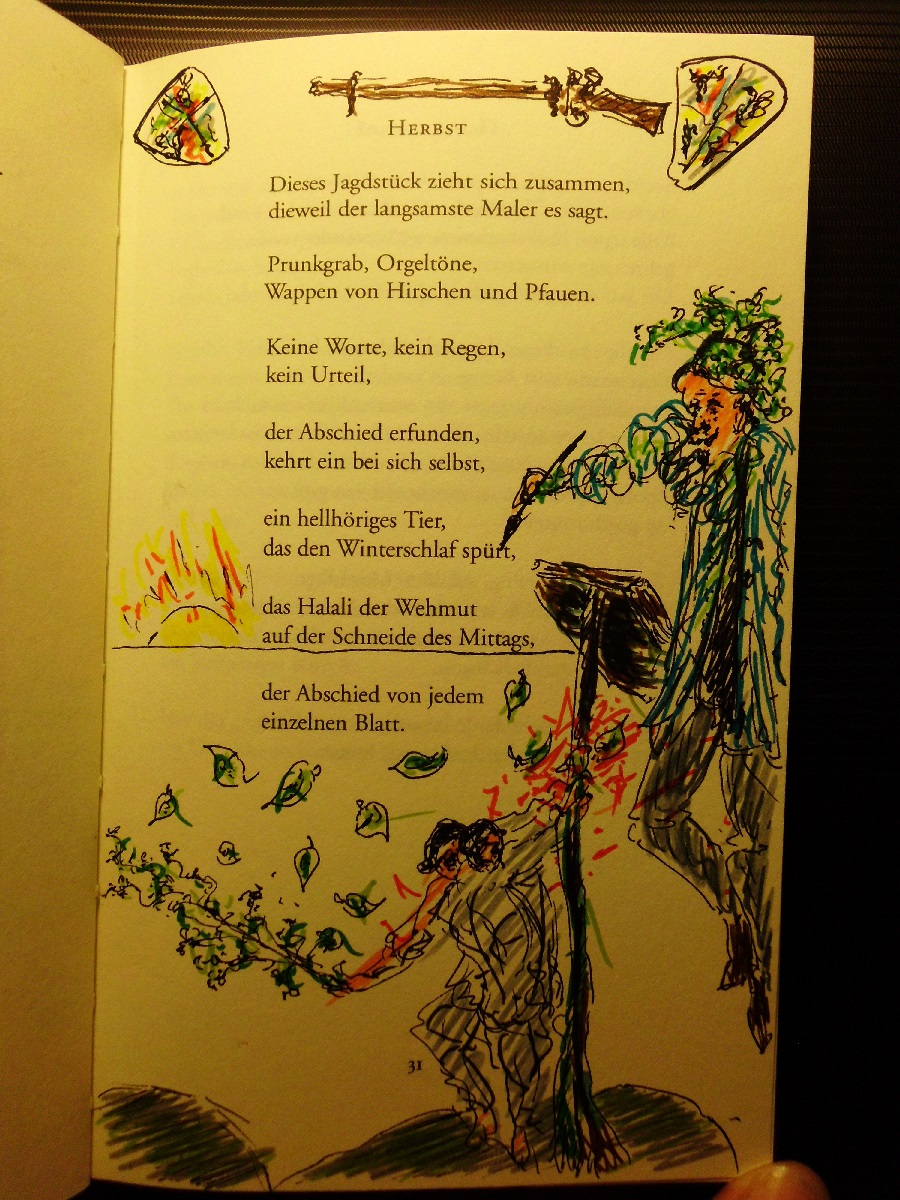 HERBST
Dieses Jagdstück zieht sich zusammen,
dieweil der langsamste Maler es sagt.
Prunkgrab, Orgeltöne,
Wappen von Hirschen und Pfauen.
Keine Worte, kein Regen,
kein Urteil,
der Abschied erfunden,
kehrt ein bei sich selbst,
ein hellhöriges Tier,
das den Winterschlaf spürt,
das Halali der Wehmut
auf der Schneide des Mittags,
der Abschied von jedem
einzelnen Blatt.
31